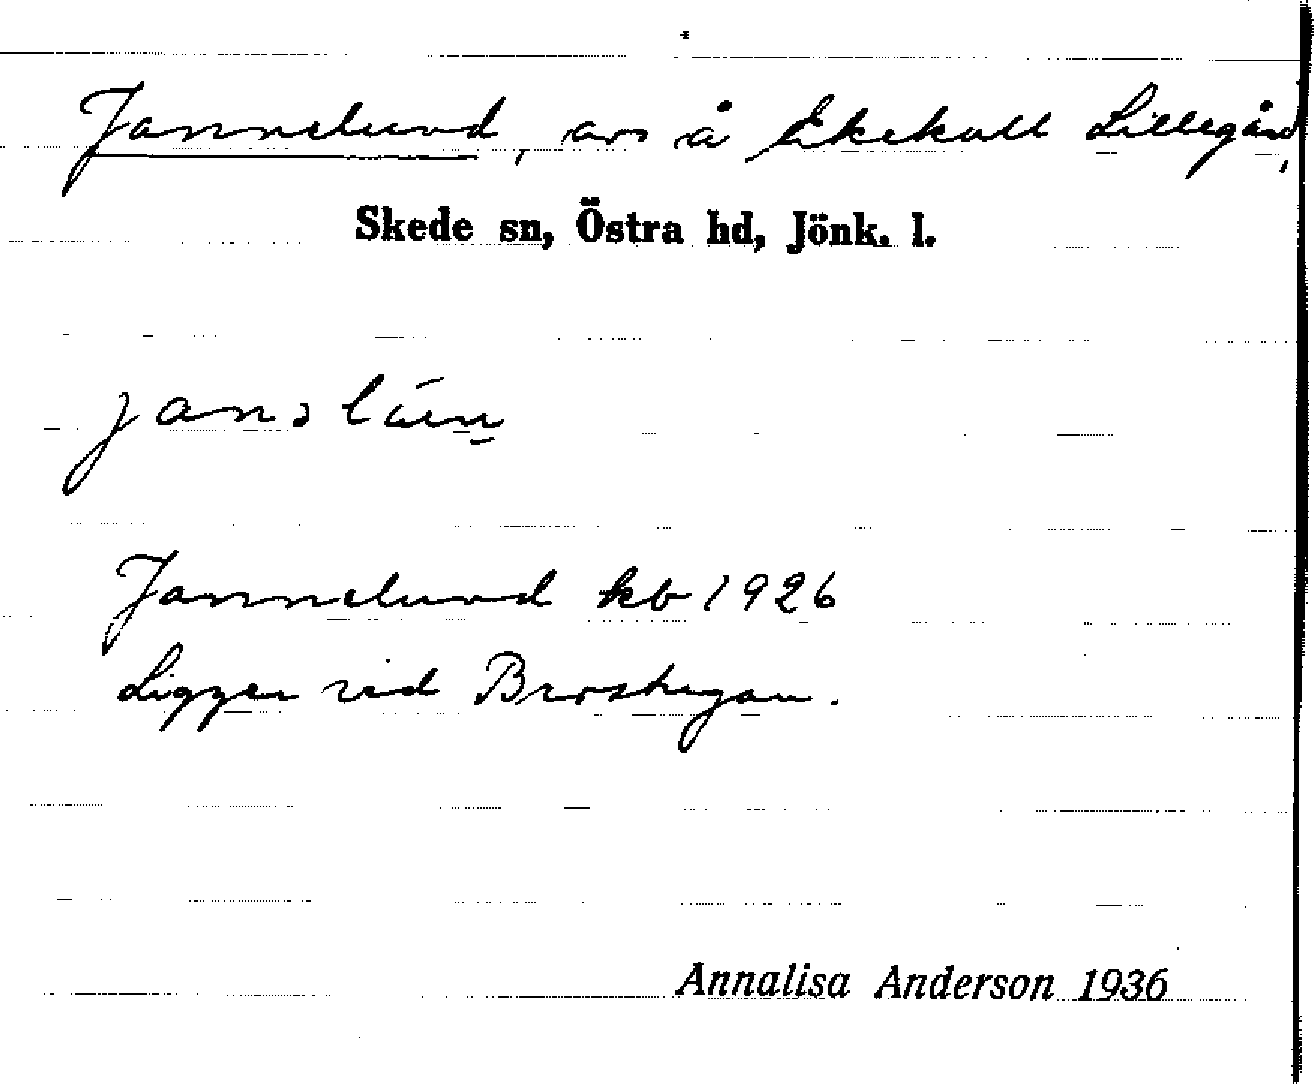 Jannelund, avs å Ekekull Lillegård,
Skede sn, Östra hd, Jönk. l.
Jannelund kb 1926
Ligger vid Brostugan.
Annalisa Anderson 1936